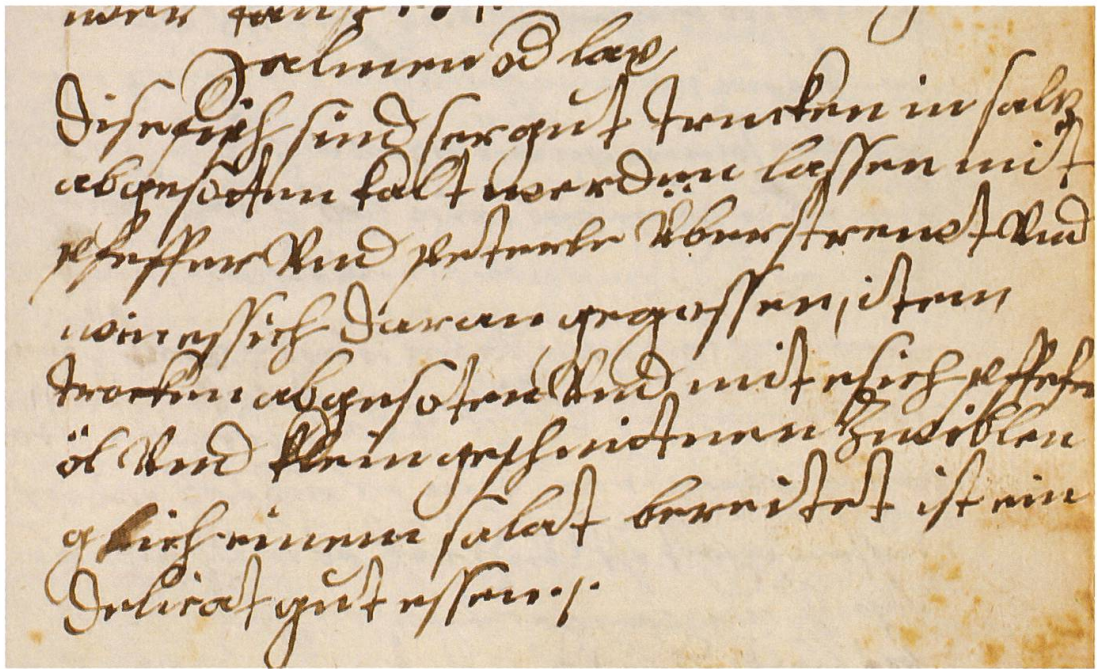 Salmen od lax
dise fisch sind ser gut trucken in saltz
abgesotten kalt werden lassen mit
pfeffer Vnd peterle Vberstreuet Vnd
winessich daran gegossen, item
trocken abgesoten Vnd mit esich pfeffer
öl Vnd klein geschnidtnen Zwiblen
gleich einem salat bereitet ist ein
delicat gut essen ./.